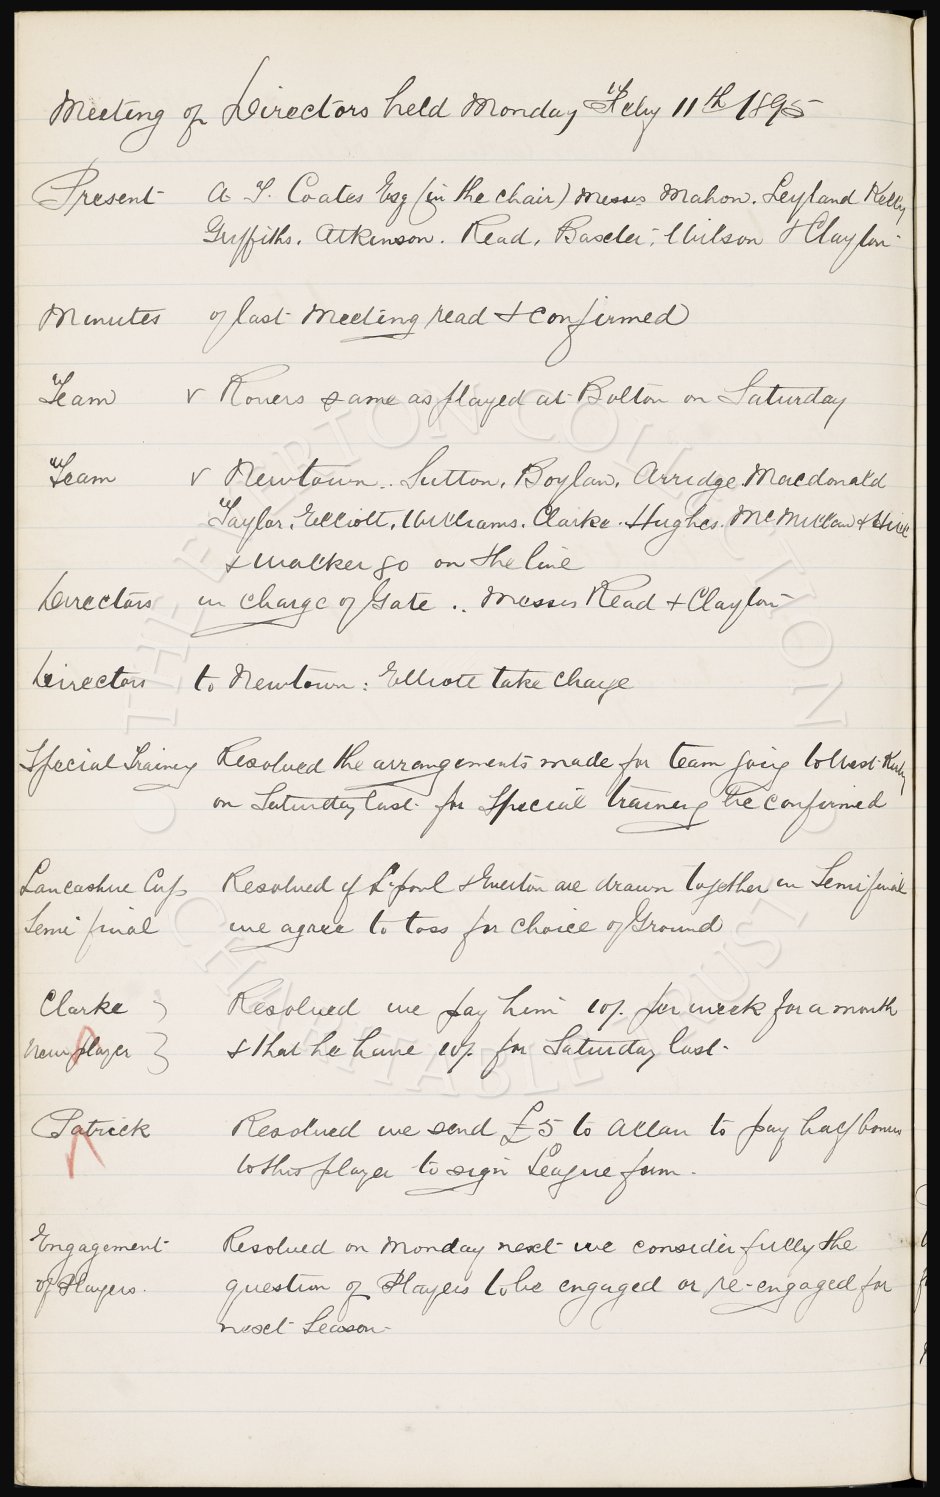 Meeting of Directors held Monday Feby 11th 1895
Present A T. Coates Esq (in the chair) Messrs Mahon. Leyland Kelly
Griffiths. Atkinson. Read. Baxter. Wilson & Clayton
Minutes of last Meeting read & confirmed
Team v Rovers same as played at Bolton on Saturday
Team v Newtown.. Sutton. Boylan. Arridge. Macdonald
Taylor. Elliott. Williams. Clarke. Hughes. McMillan &
& Walker go on the line
Directors in charge of Gate .. Messrs Read & Clayton
Directors to Newtown : Elliott take charge
Special Training Resolved the arrangements made for team going to West Kirby
on Saturday last for Special training be confirmed
Lancashire Cup Resolved if L'pool & Everton are drawn together in Semifinal
Semi final we agree to toss for choice of Ground
Clarke } Resolved we pay him 10/. per week for a month
New player } & that he have 10/. for Saturday last.
Patrick Resolved we send £5 to Allan to pay half bonus
to this player to sign League form.
Engagement Resolved on Monday next we consider fully the
of Players. question of Players to be engaged or re-engaged for
next Season.
THE EVERTON COLLECTION
CHARITABLE TRUST